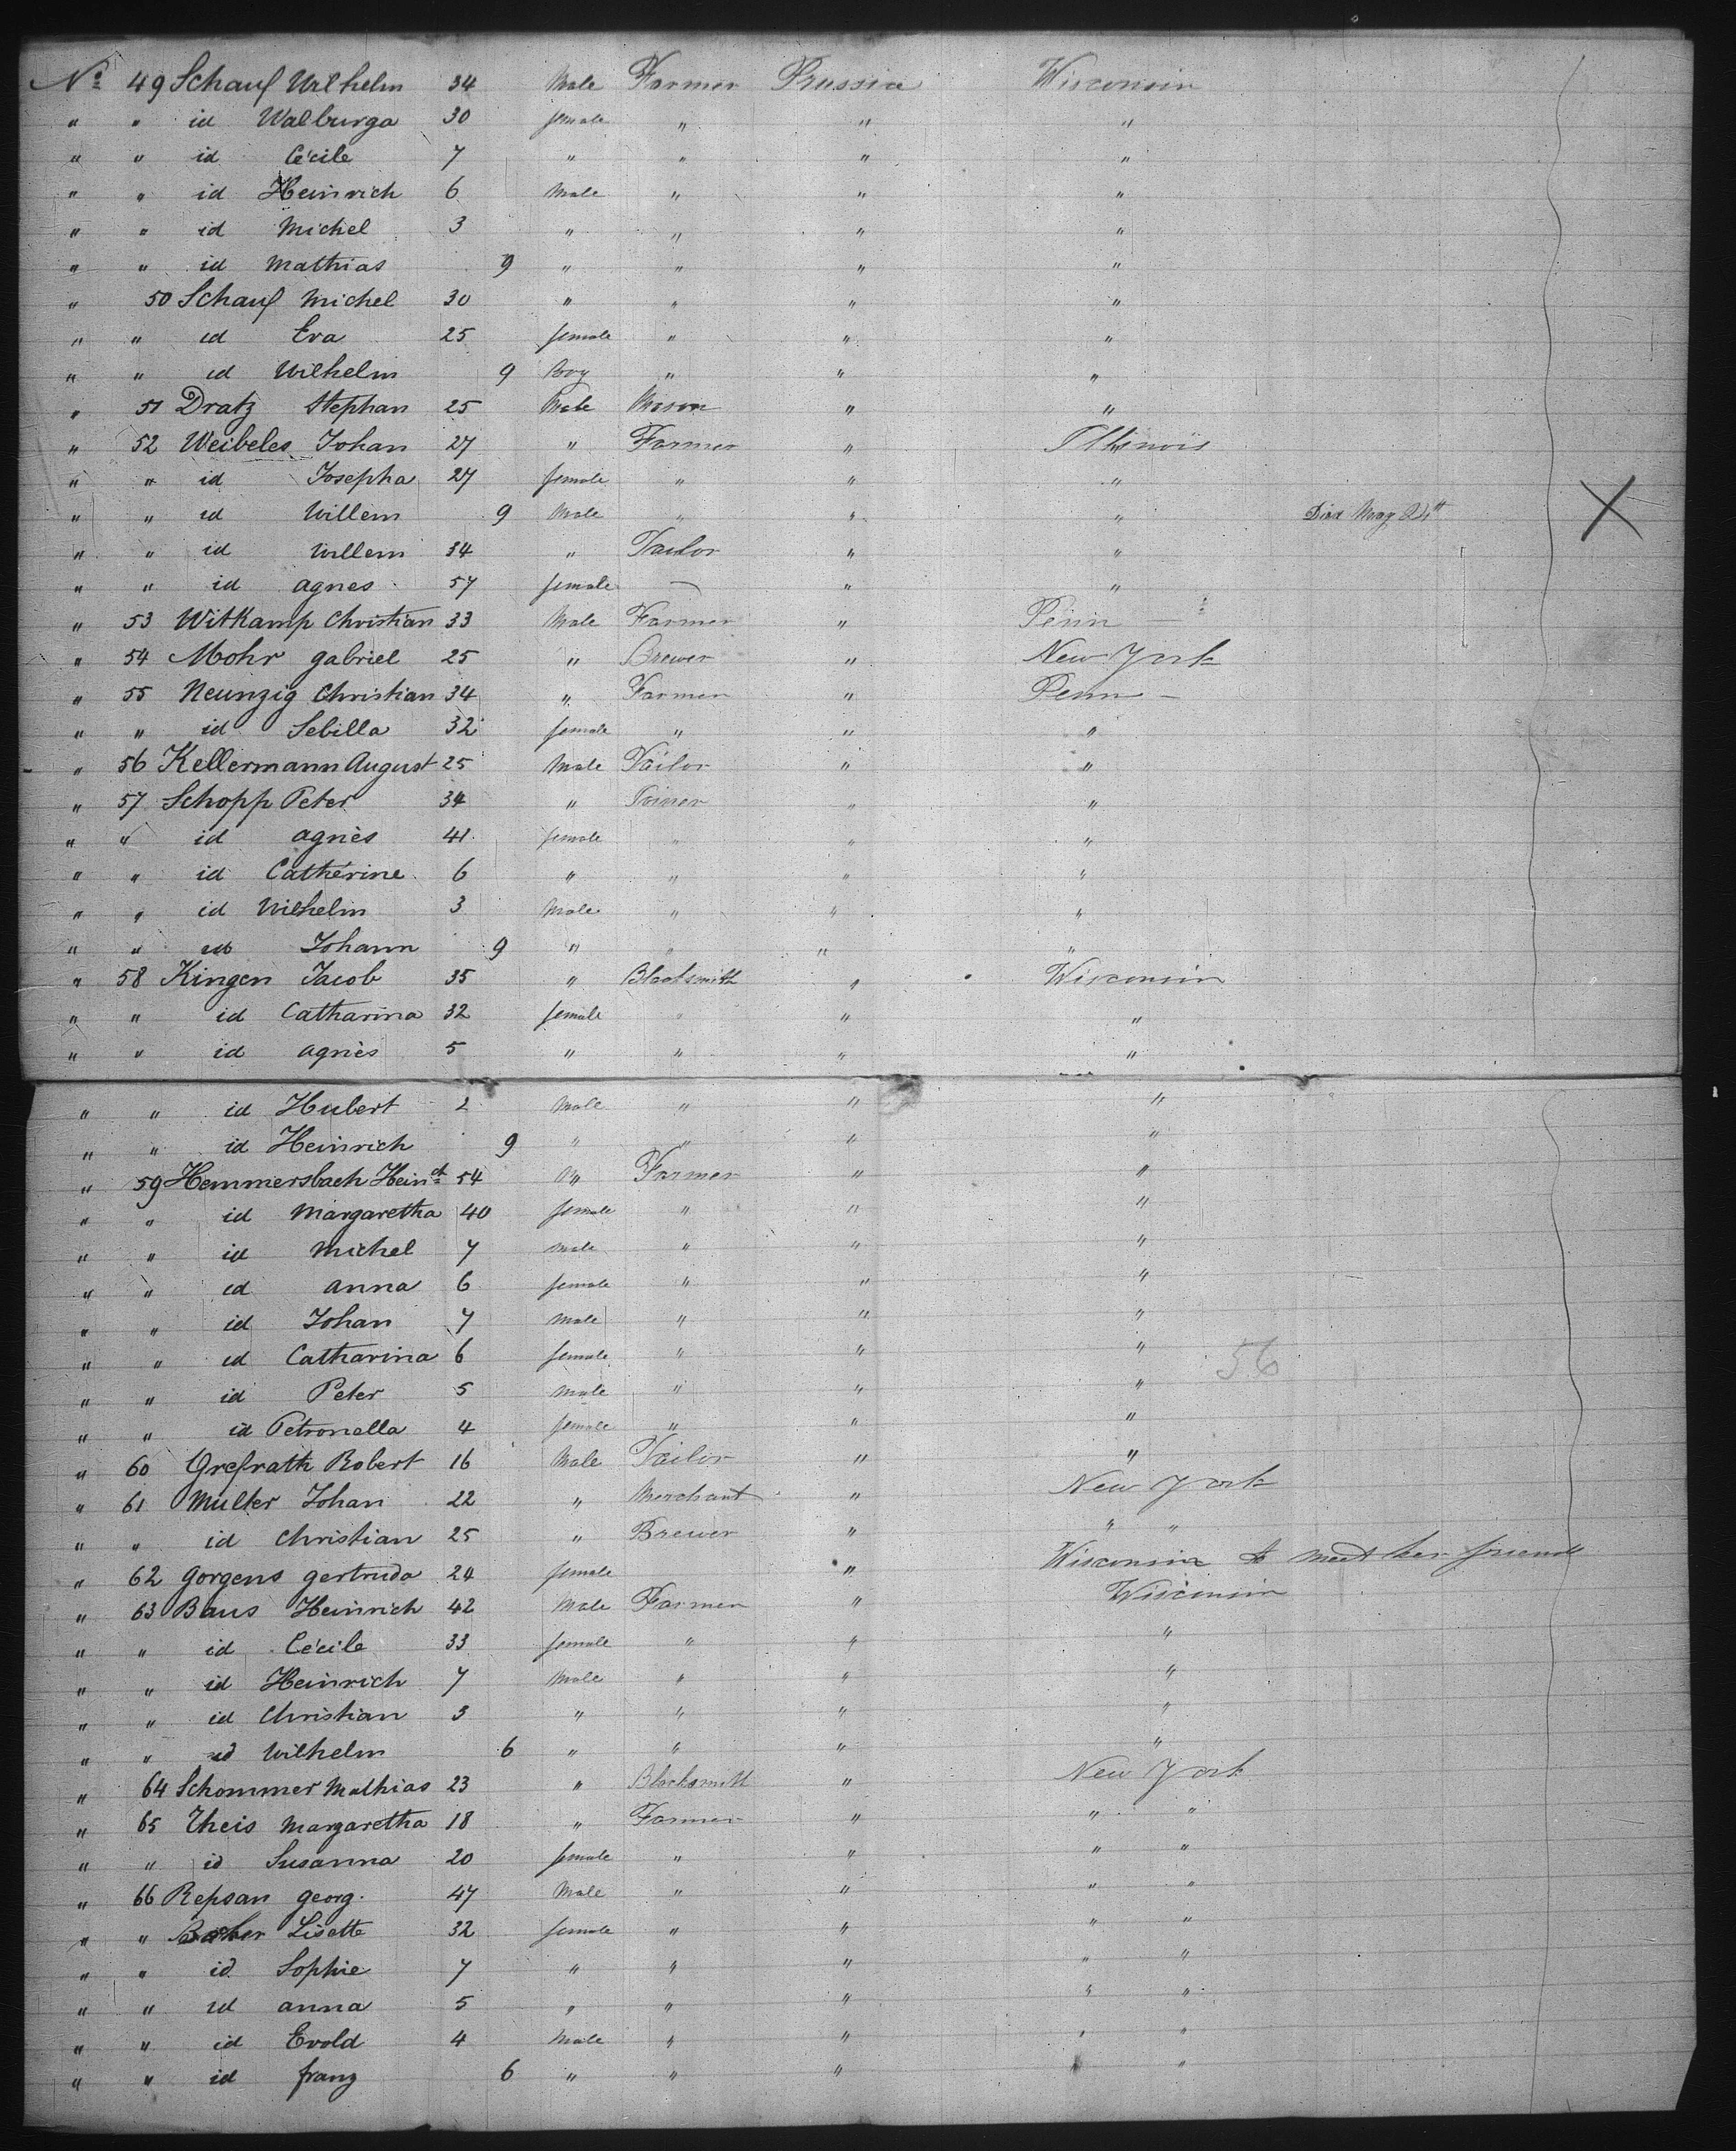 No 49 Schauf Wilhelm 34 Male Farmer Prussia Wisconsin
" " id Walburga 30 female " " "
" " id Cécile 7 " " " "
" " id Heinrich 6 Male " " "
" " id Michel 3 " " " "
" " id Mathias 9 " " " "
" 50 Schauf Michel 30 " " " "
" " id Eva 25 female " " "
" " id Wilhelm 9 Boy " " "
" 51 Dratz Stephan 25 Male Mason " "
" 52 Weibeles Johan 27 " Farmer " Illinois
" " id Josepha 27 female " " "
" " id Willem 9 Male " " " Died May 24th X
" " id Willem 34 " Tailor " "
" " id agnes 57 female — " "
" 53 Witkamp Christian 33 Male Farmer " Penn —
" 54 Mohr gabriel 25 " Brewer " New York
" 55 Neunzig Christian 34 " Farmer " Penn —
" " id Sebilla 32 female " " "
" 56 Kellermann August 25 Male Tailor " "
" 57 Schopp Peter 34 " Joiner " "
" " id agnès 41 female " " "
" " id Cathérine 6 " " " "
" " id Wilhelm 3 Male " " "
" " id Johann 9 " " " "
" 58 Kingen Jacob 35 " Blacksmith " Wisconsin
" " id Catharina 32 female " " "
" " id agnès 5 " " " "
" " id Hubert 2 Male " " "
" " id Heinrich 9 " " " "
" 59 Hemmersbach Heinch 54 " Farmer " "
" " id Margaretha 40 female " " "
" " id Michel 7 male " " "
" " id anna 6 female " " "
" " id Johan 7 Male " " "
" " id Catharina 6 female " " " 56
" " id Peter 5 Male " " "
" " id Petronella 4 female " " "
" 60 Grefrath Robert 16 Male Tailor " "
" 61 Muller Johan 22 " Merchant " New York
" " id Christian 25 " Brewer " " "
" 62 gorgens gertruda 24 female " Wisconsin to meet her friend
" 63 Baus Heinrich 42 Male Farmer " Wisconsin
" " id Cécile 33 female " " "
" " id Heinrich 7 Male " " "
" " id Christian 3 " " " "
" " id Wilhelm 6 " " " "
" 64 Schommer Mathias 23 " Blacksmith " New York
" 65 Theis Margaretha 18 " Farmer " " "
" " id Susanna 20 female " " " "
" 66 Repsan georg. 47 Male " " " "
" " Lisette 32 female " " " "
" " id Sophie 7 " " " " "
" " id anna 5 " " " " "
" " id Evold 4 Male " " " "
" " id franz 6 " " " " "